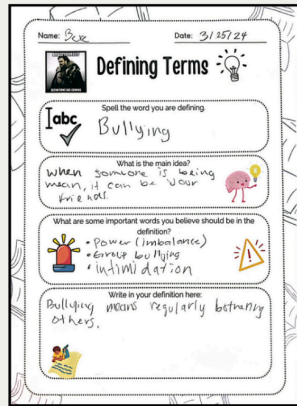 Name: Bexe Date: 3/25/24
Defining Terms
Spell the word you are defining.
abc
Bullying
What is the main idea?
When someone is being
mean, it can be your
friends.
What are some important words you believe should be in the
definition?
• Power (imbalance)
• Group bullying
• intimidation
Write in your definition here:
Bullying means regularly bothering
others.